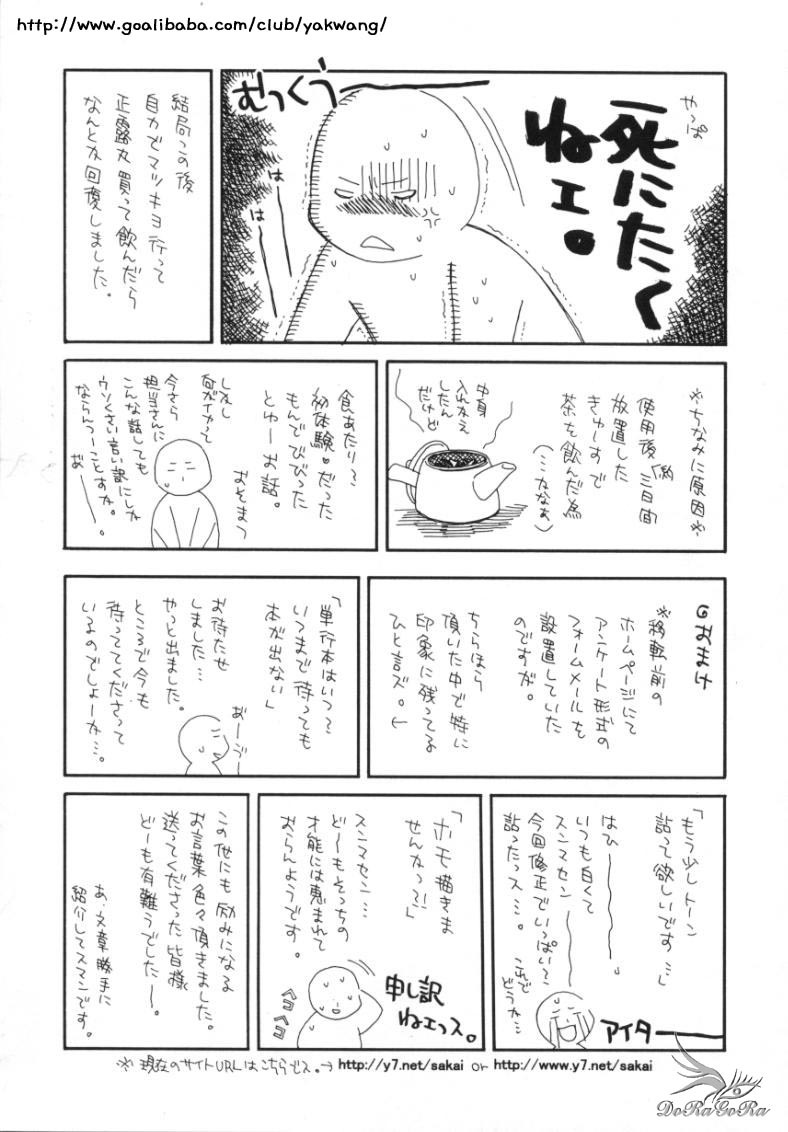 http://www.goalibaba.com/club/yakwang/
やっぱ
死にたく
ねエ。
むっくぅ
はー
はー
結局この後
自力でマツキヨ行って
正露丸買って飲んだら
なんとか回復しました。
※ちなみに原因※
使用後（約三日間
放置した
きゅーすで
茶を飲んだ為
中身
入れかえ
したん
だけど
食あたり〜
初体験♥だった
もんでびびった
とゆーお話。
おそまつ
しかし
何がイカって
今さら
担当さんに
こんな話しても
ウソくさい言い訳にしか
ならんつーことすか。
おーー。
おまけ
※移転前の
ホームページにて
アンケート形式の
フォームメールを
設置していた
のですが。
ちらほら
頂いた中で特に
印象に残ってる
ひと言ズ。↓
「単行本はいつ〜?
いつまで待っても
本が出ない」
お待たせ
しました…
やっと出ました。
ところで今も
待っててくださって
いるのでしょーか…。
「もう少しトーン
貼って欲しいです…」
はひーーー。
いつも白くて
スンマセンーー
今回修正でいっぱい〜
貼ったっス…。
これで
どうか…
アイター
「ホモ描きま
せんかっ?!」
スンマセン…
どーもそっちの
才能には恵まれて
おらんようです。
申し訳
ねエっス。
ペコペコ
この他にも励みになる
お言葉色々頂きました。
送ってくださった皆様
どーも有難うでしたー。
あ、文章勝手に
紹介してスマンです。
※現在のサイトURLはこちらでス。→http://y7.net/sakai or http://www.y7.net/sakai
DoRaGoRa